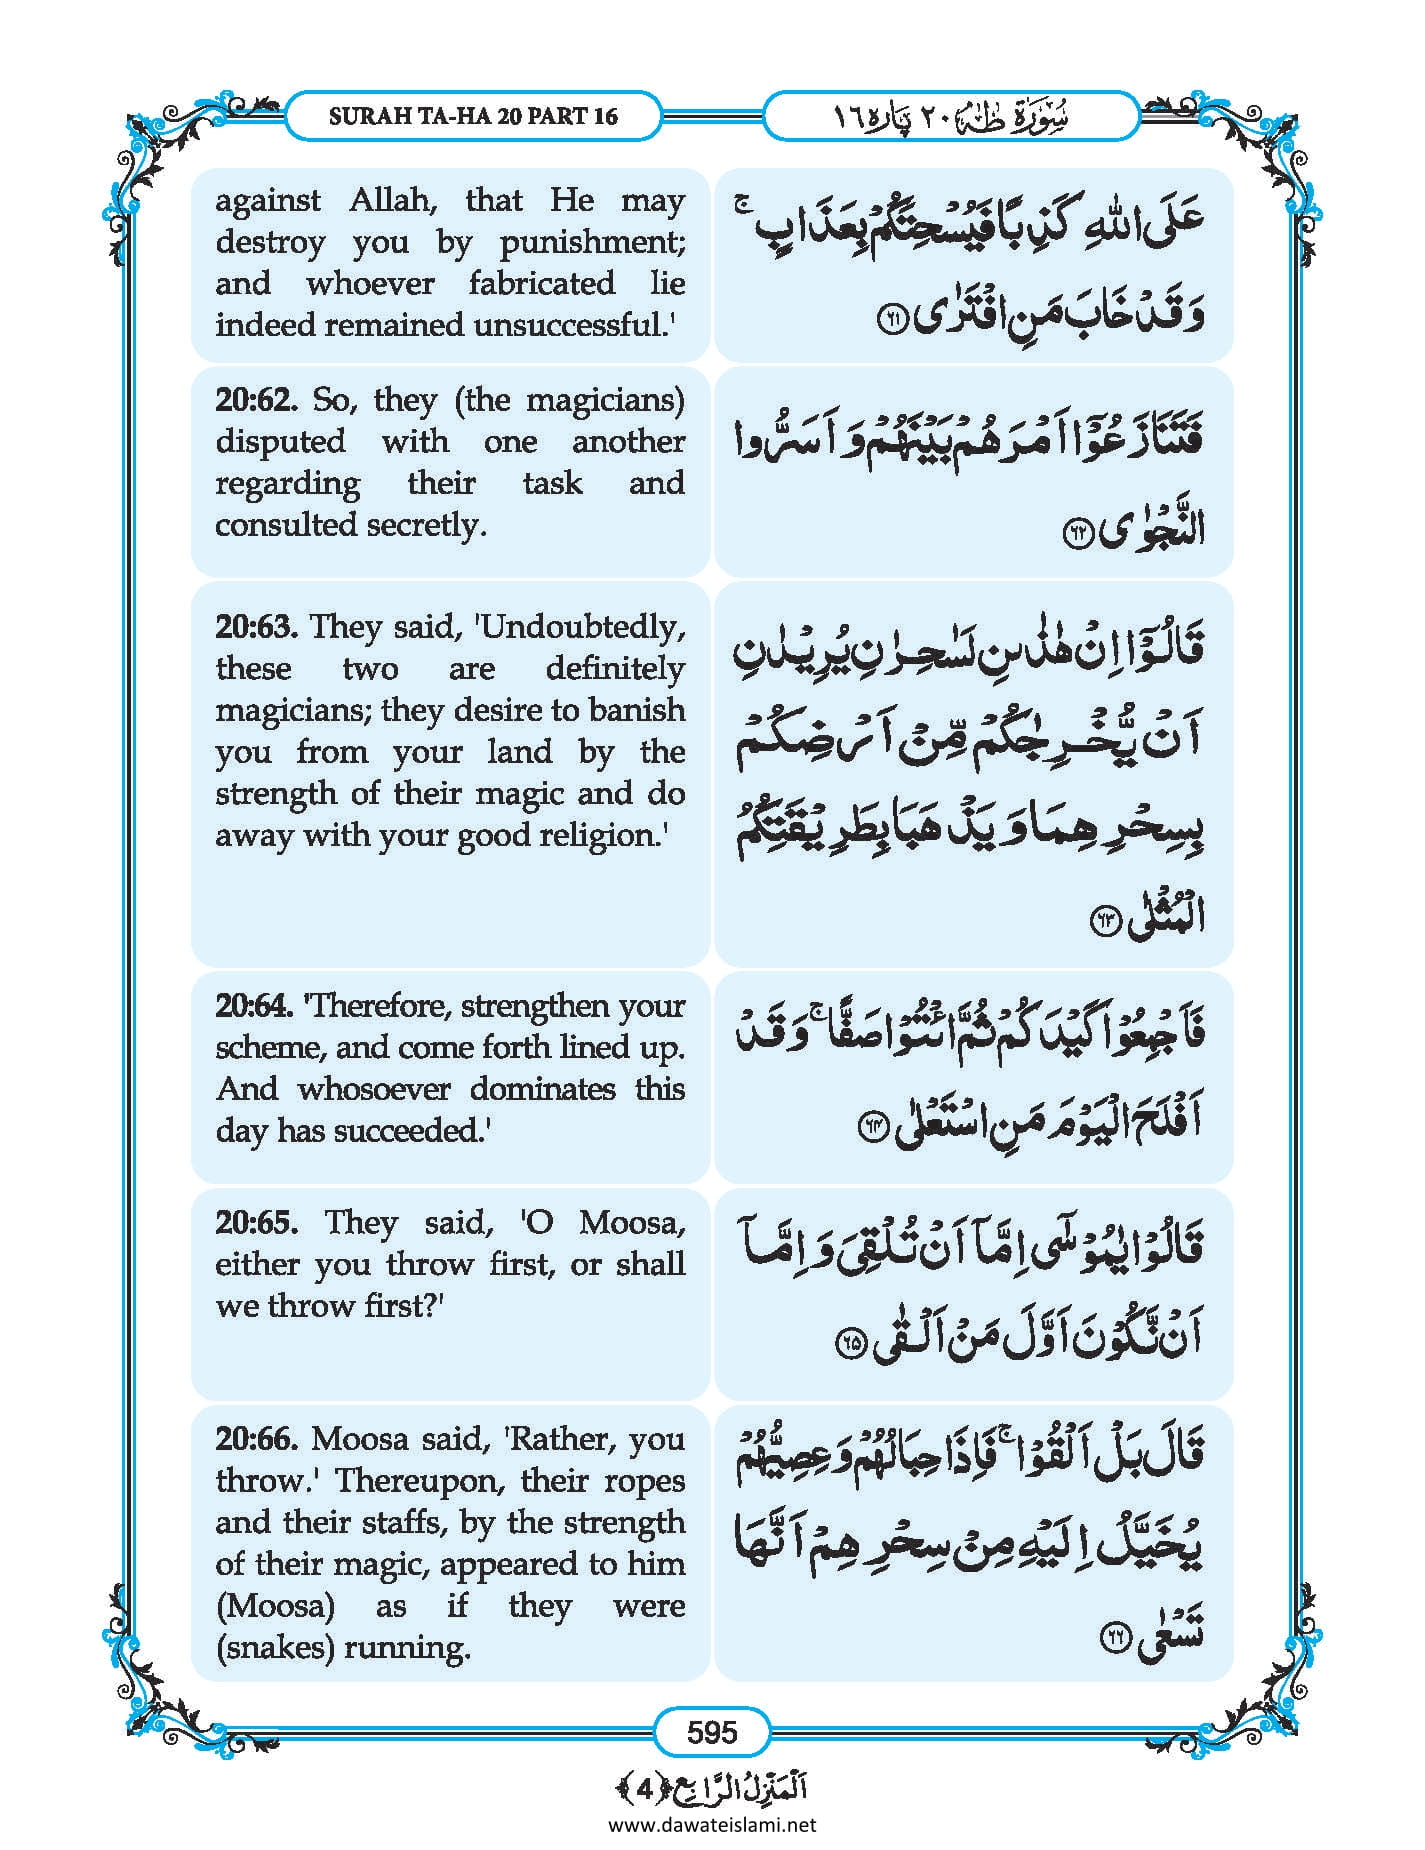 SURAH TA-HA 20 PART 16
سُوْرَۃ طٰہٰ ٢٠ پَارہ ١٦
against Allah, that He may
destroy you by punishment;
and whoever fabricated lie
indeed remained unsuccessful.'
عَلَى اللّٰهِ كَذِبًا فَیُسْحِتَكُمْ بِعَذَابٍ ۚ
وَ قَدْ خَابَ مَنِ افْتَرٰى ﴿۶۱﴾
20:62. So, they (the magicians)
disputed with one another
regarding their task and
consulted secretly.
فَتَنَازَعُوْۤا اَمْرَهُمْ بَیْنَهُمْ وَ اَسَرُّوا
النَّجْوٰى ﴿۶۲﴾
20:63. They said, 'Undoubtedly,
these two are definitely
magicians; they desire to banish
you from your land by the
strength of their magic and do
away with your good religion.'
قَالُوْۤا اِنْ هٰذٰىنِ لَسٰحِرٰنِ یُرِیْدٰنِ
اَنْ یُّخْرِجٰكُمْ مِّنْ اَرْضِكُمْ
بِسِحْرِهِمَا وَ یَذْهَبَا بِطَرِیْقَتِكُمُ
الْمُثْلٰى ﴿۶۳﴾
20:64. 'Therefore, strengthen your
scheme, and come forth lined up.
And whosoever dominates this
day has succeeded.'
فَاَجْمِعُوْا كَیْدَكُمْ ثُمَّ ائْتُوْا صَفًّا ۚ وَ قَدْ
اَفْلَحَ الْیَوْمَ مَنِ اسْتَعْلٰى ﴿۶۴﴾
20:65. They said, 'O Moosa,
either you throw first, or shall
we throw first?'
قَالُوْا یٰمُوْسٰۤى اِمَّاۤ اَنْ تُلْقِیَ وَ اِمَّاۤ
اَنْ نَّكُوْنَ اَوَّلَ مَنْ اَلْقٰى ﴿۶۵﴾
20:66. Moosa said, 'Rather, you
throw.' Thereupon, their ropes
and their staffs, by the strength
of their magic, appeared to him
(Moosa) as if they were
(snakes) running.
قَالَ بَلْ اَلْقُوْا ۚ فَاِذَا حِبَالُهُمْ وَ عِصِیُّهُمْ
یُخَیَّلُ اِلَیْهِ مِنْ سِحْرِهِمْ اَنَّهَا
تَسْعٰى ﴿۶۶﴾
595
اَلْمَنْزِلُ الرَّابِع ﴿4﴾
www.dawateislami.net